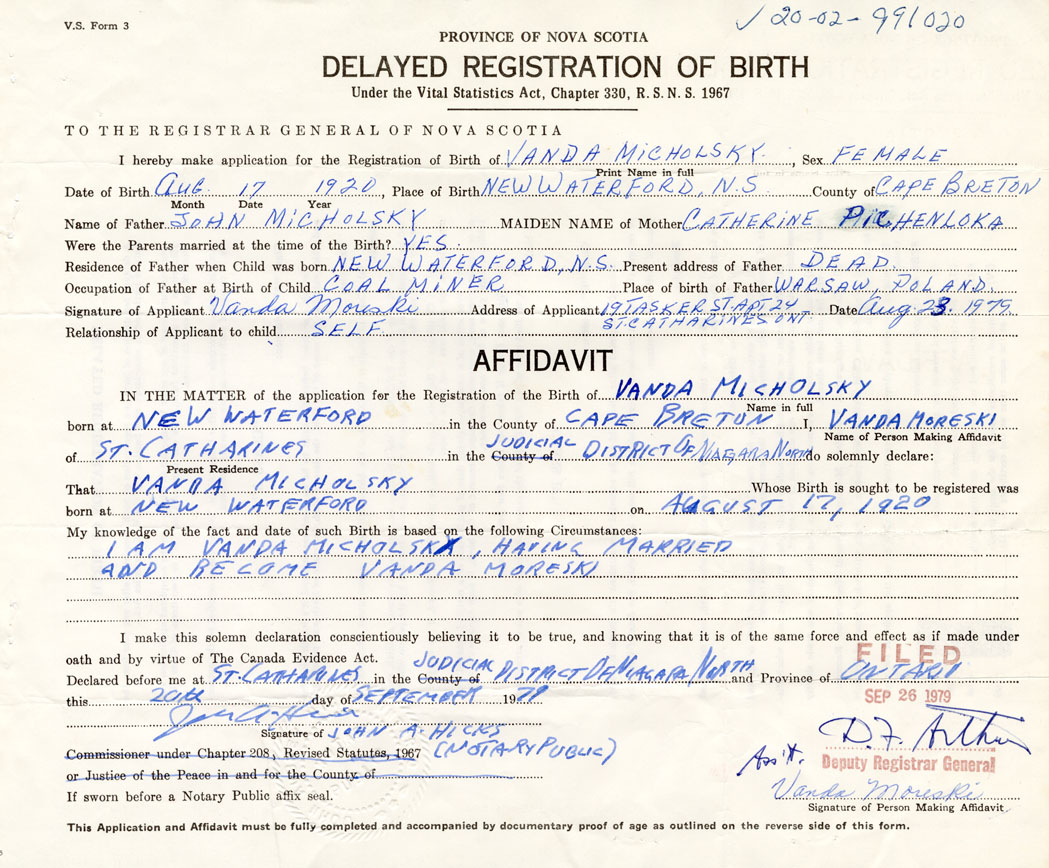 V.S. Form 3
✓ 20-02-991020
PROVINCE OF NOVA SCOTIA
DELAYED REGISTRATION OF BIRTH
Under the Vital Statistics Act, Chapter 330, R.S.N.S. 1967
TO THE REGISTRAR GENERAL OF NOVA SCOTIA
I hereby make application for the Registration of Birth of VANDA MICHOLSKY, Sex FEMALE
Print Name in full
Date of Birth Aug. 17 1920, Place of Birth NEW WATERFORD, N.S County of CAPE BRETON
Month Date Year
Name of Father JOHN MICHOLSKY MAIDEN NAME of Mother CATHERINE PICHENLOKA
Were the Parents married at the time of the Birth? YES.
Residence of Father when Child was born NEW WATERFORD, N.S. Present address of Father DEAD.
Occupation of Father at Birth of Child COAL MINER Place of birth of Father WARSAW, POLAND.
Signature of Applicant Vanda Moreski Address of Applicant 19 TASKER ST. APT. 24 Date Aug. 23 1979.
ST. CATHARINES ONT
Relationship of Applicant to child SELF
AFFIDAVIT
IN THE MATTER of the application for the Registration of the Birth of VANDA MICHOLSKY
Name in full
born at NEW WATERFORD in the County of CAPE BRETON I, VANDA MORESKI
Name of Person Making Affidavit
of ST. CATHARINES in the County of JUDICIAL DISTRICT OF NIAGARA NORTH do solemnly declare:
Present Residence
That VANDA MICHOLSKY Whose Birth is sought to be registered was
born at NEW WATERFORD on AUGUST 17, 1920
My knowledge of the fact and date of such Birth is based on the following Circumstances:
I AM VANDA MICHOLSKY, HAVING MARRIED
AND BECOME VANDA MORESKI
I make this solemn declaration conscientiously believing it to be true, and knowing that it is of the same force and effect as if made under
oath and by virtue of The Canada Evidence Act.
FILED
Declared before me at ST. CATHARINES in the County of JUDICIAL DISTRICT OF NIAGARA NORTH and Province of ONTARIO
this 20th day of SEPTEMBER 1979
SEP 26 1979
Signature of JOHN A. HICKS
D.F. Arthur
Commissioner under Chapter 208, Revised Statutes, 1967 (NOTARY PUBLIC)
Ass't. Deputy Registrar General
or Justice of the Peace in and for the County of
Vanda Moreski
If sworn before a Notary Public affix seal.
Signature of Person Making Affidavit
This Application and Affidavit must be fully completed and accompanied by documentary proof of age as outlined on the reverse side of this form.